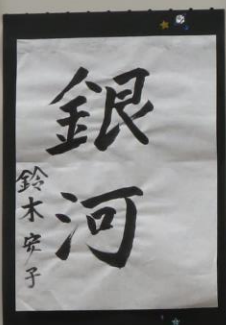 銀河
鈴木安子